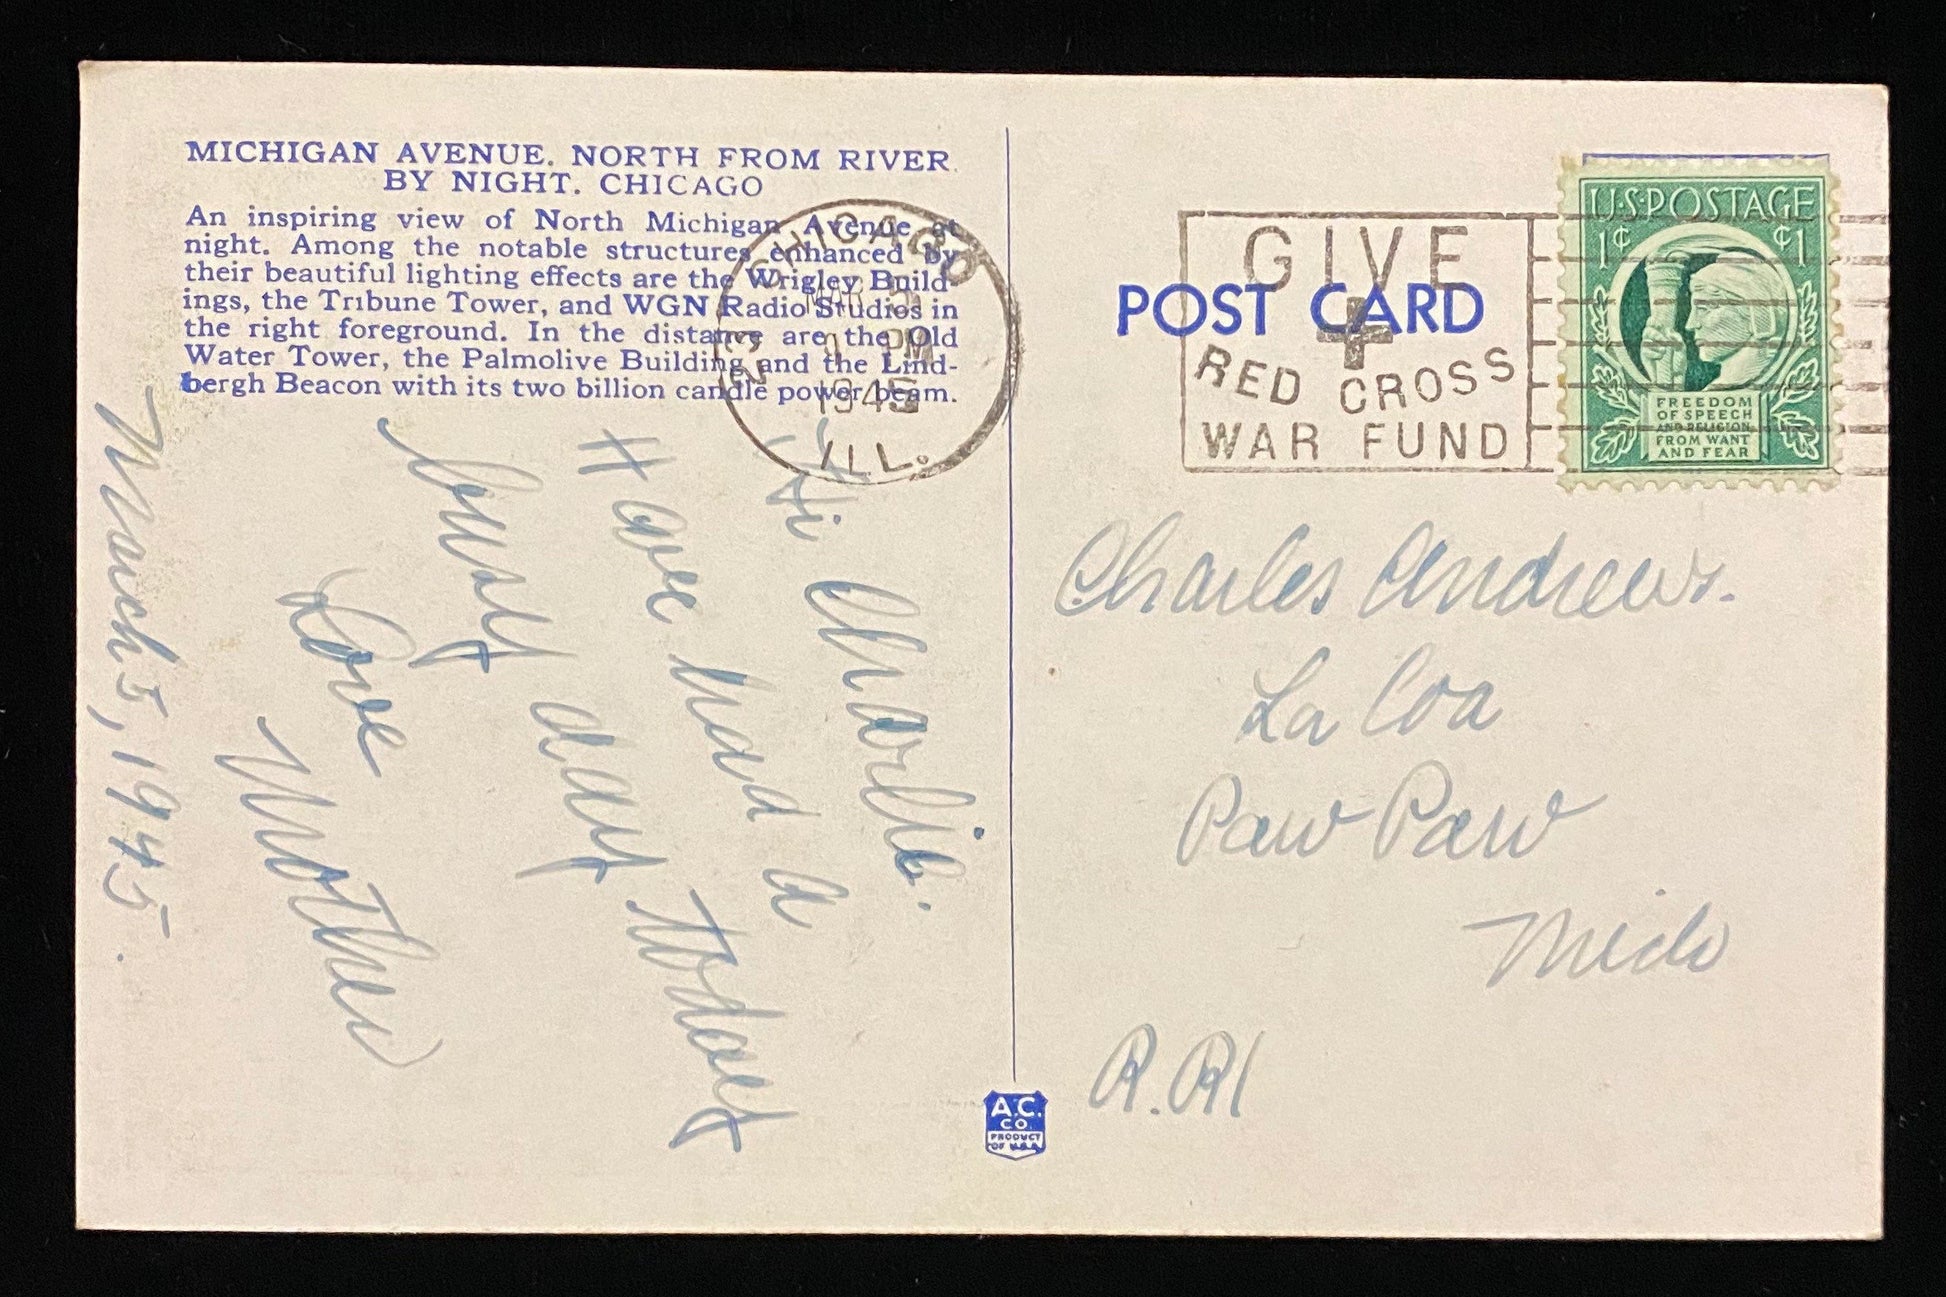 MICHIGAN AVENUE, NORTH FROM RIVER
BY NIGHT. CHICAGO
An inspiring view of North Michigan Avenue at
night. Among the notable structures enhanced by
their beautiful lighting effects are the Wrigley Build-
ings, the Tribune Tower, and WGN Radio Studios in
the right foreground. In the distance are the Old
Water Tower, the Palmolive Building and the Lind-
bergh Beacon with its two billion candle power beam.
CHICAGO
MAR
PM
1945
ILL.
Hi Charlie.
Have had a
busy day today
Love
Mother
March 5, 1945.
POST CARD
GIVE
RED CROSS
WAR FUND
U.S. POSTAGE
1¢ ¢1
FREEDOM
OF SPEECH
AND RELIGION
FROM WANT
AND FEAR
Charles Andrews.
La Coa
Paw Paw
Mich
R.R1
A.C.
CO.
PRODUCT
OF U.S.A.